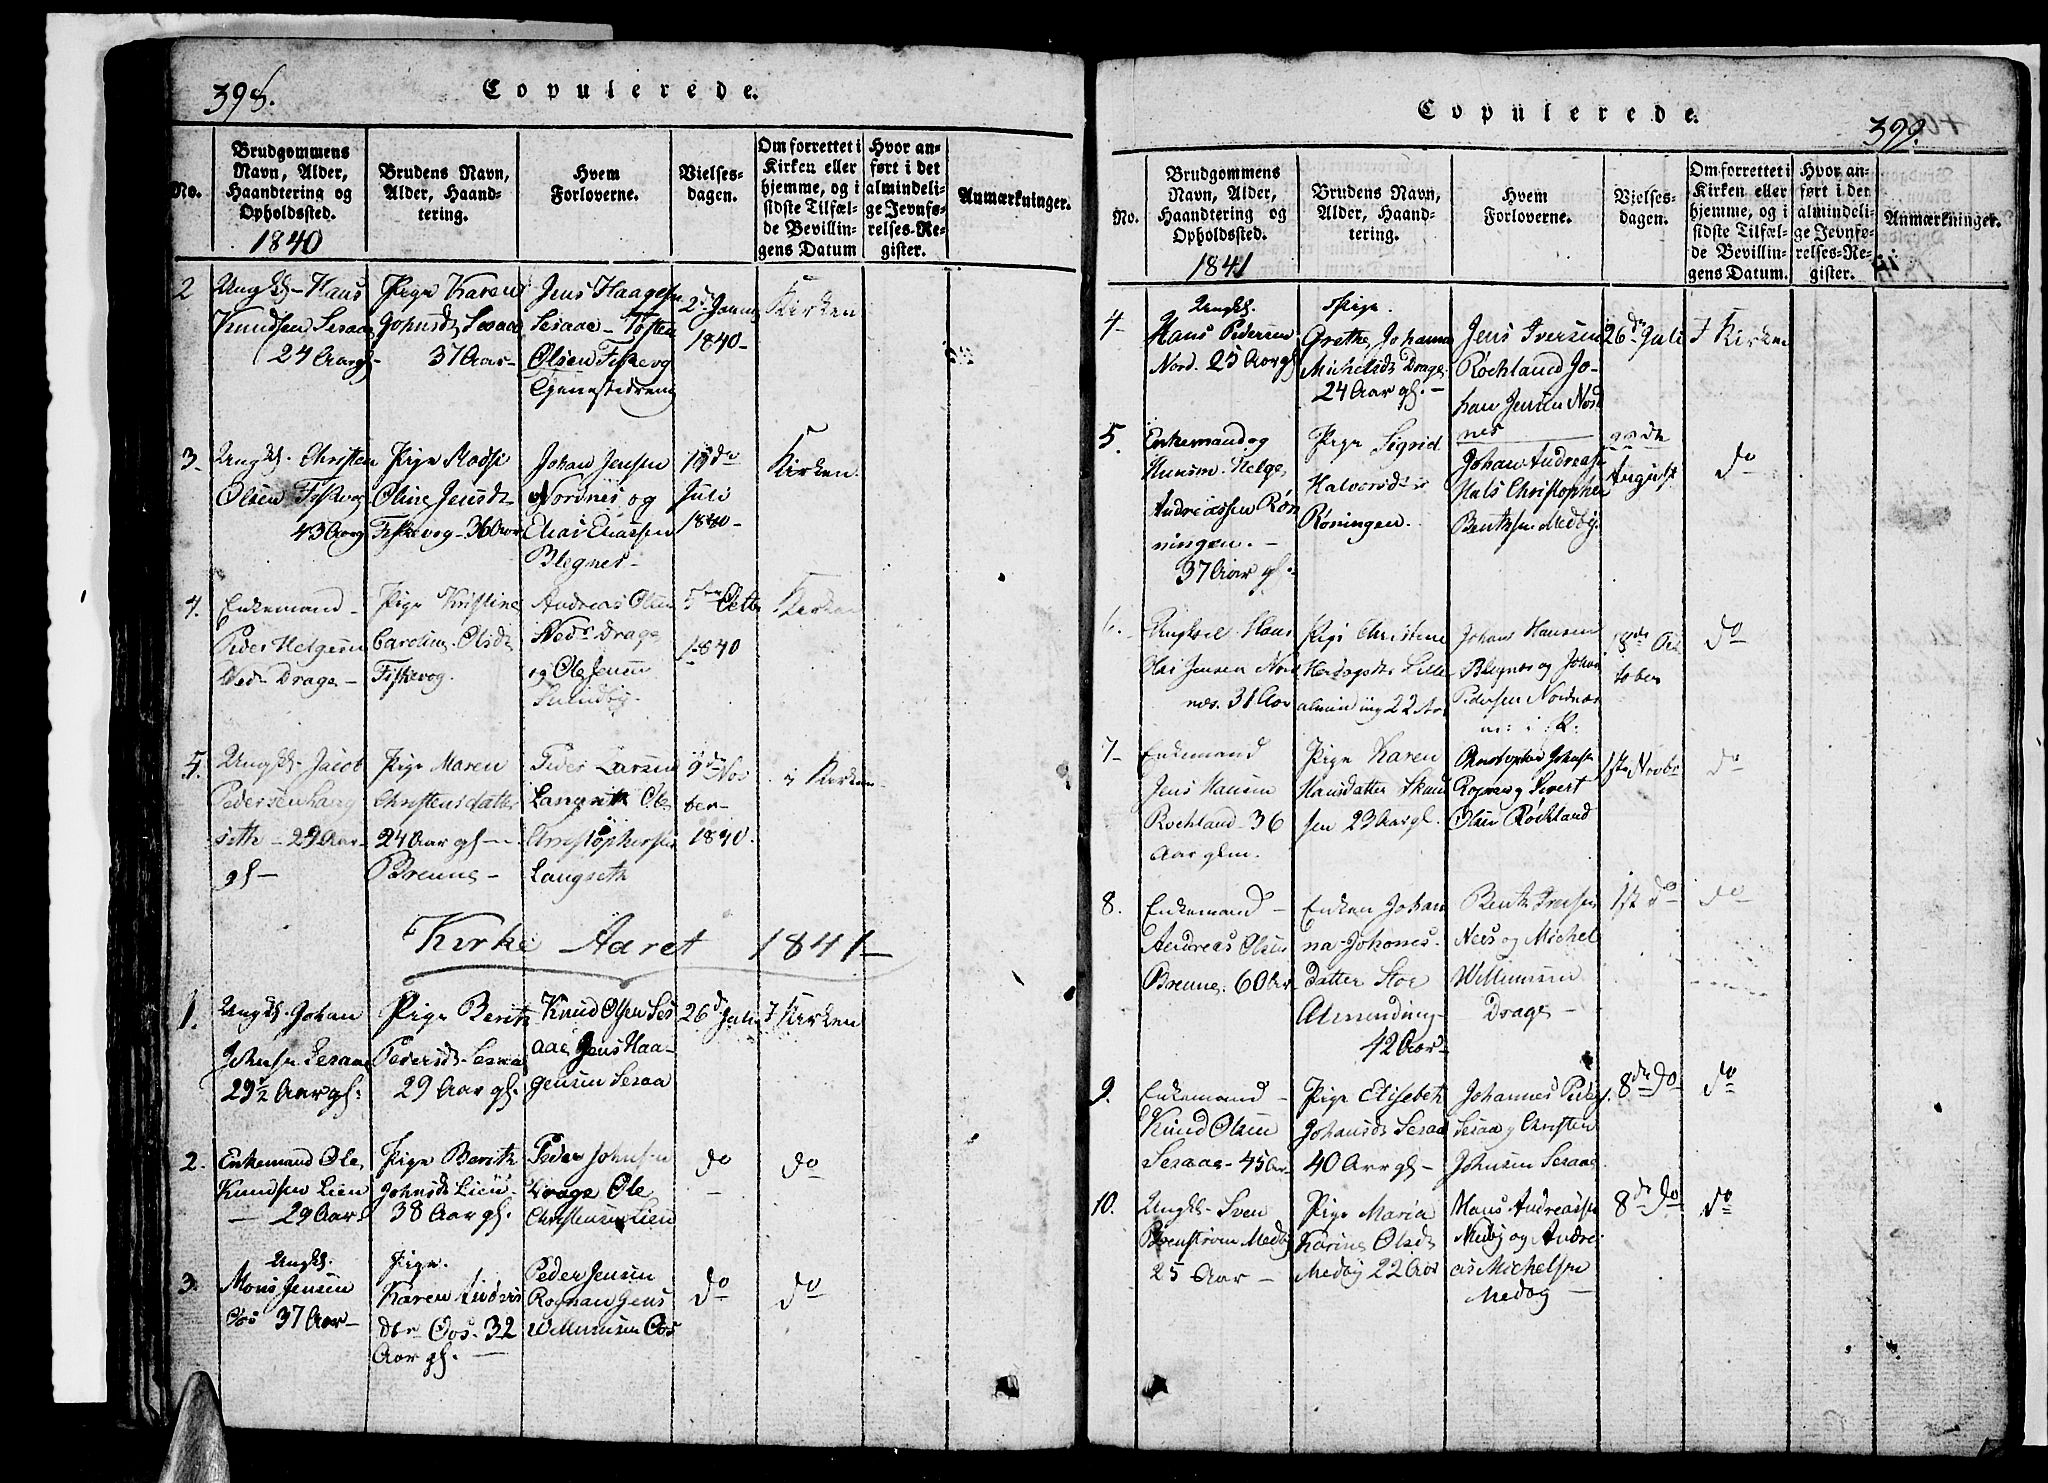 398.
Copulerede.
No.
Brudgommens
Navn, Alder,
Haandtering og
Opholdssted.
1840
Brudens Navn,
Alder, Haand-
tering.
Hvem
Forloverne.
Vielses-
dagen.
Om forrettet i
Kirken eller
hjemme, og i
sidste Tilfæl-
de Bevillin-
gens Datum
Hvor an-
ført i det
almindeli-
ge Jevnfø-
relses-Re-
gister.
Anmærkninger.
2
Ungk. Hans
Knudsen Sesaae
24 Aar g
Pige Karen
Johnsd. Sesaae
37 Aar
Jens Haagensen
Sesaae
Olsen Fiskevog
2d Januar
1840
Kirken
3
Ungk. Christen
Olsen Fiskevog
43 Aar g
Pige
Oline Jensdr
Fiskevog 36 Aar
Johan Jensen
Nordnes og
Elias Eliassen
Blegnes
de
Juli
1840
Kirken
4.
Enkemand
Peder Helgesen
Nedr Drage
Pige Kristine
Caroline Olsdr
Fiskevog.
Andreas Olsen
Nedr Drage
og Ole Jensen
5te Octbr
1840
Kirken
5.
Ungk. Jacob
Pedersen Lang
seth 22 Aar
gl
Pige Maren
Christensdatter
24 Aar gl
Brenne
Peder Larsen
Langseth Ole
Christophersen
Langseth
9de Nov
ber
1840.
i Kirken
Kirke Aaret 1841
1.
Ungk. Johan
Johnsen Sesaae
29½ Aar gl.
Pige Berith
Pedersdr Sesaa
29 Aar gl.
Knud Olsen Ses
aae Jens Haa-
gensen Sesaa
26d Juli
I Kirken
2.
Enkemand Ole
Knudsen Lien
29 Aar
Pige Berith
Johnsdr Lien
38 Aar gl.
Peder Johnsen
Drage Ole
Christensen Lien
do
do
3.
Ungk.
Mons Jensen
Oos 37 Aar
Pige.
Karen
dtr Oos. 32
Aar gl.
Peder Jensen
Rognan Jens
Willumsen Oos
do
do
399.
Copulerede.
No.
Brudgommens
Navn, Alder,
Haandtering og
Opholdssted.
1841
Brudens Navn,
Alder, Haand-
tering.
Hvem
Forloverne.
Vielses-
dagen.
Om forrettet i
Kirken eller
hjemme, og i
sidste Tilfæl-
de Bevillin-
gens Datum.
Hvor an-
ført i det
almindeli-
ge Jevnfø-
relses-Re-
gister.
Anmærkninger.
4
Ungk.
Hans Pedersen
Nord. 25 Aar gl
Pige.
Grethe Johanna
Michelsdr Drage
24 Aar gl.
Jens Iversen
Rochland Jo-
han Jensen Nord
nes
26de Juli
I Kirken
5.
Enkemand og
Huusm. Helge
Andreassen Røn
ningen.
37 Aar gl.
Pige Sigrid
Halvorsdr
Røningen.
Johan Andreasen
Hals Christopher
Bentsen Medby.
August
do
6.
Ungkarl Hans
Olai Jensen Nord
næs. 31 Aar
Pige Christene
Lille
alminding 22 Aar
Johan Hansen
Blegnæs og Johan
Pedersen Nordnæs
18de Oc
tober
do
7
Enkemand
Jens Hansen
Rochland 36
Aar glm.
Pige Karen
Hansdatter
sen 23 Aar gl.
Christopher Johnsen
Rognan og Sivert
Olsen Rochland
1ste Novbr
do
8.
Enkemand
Andreas Olsen
Brenne. 60 Aar
Enken Johan
na Johannes-
datter Stor
Almending
42 Aar
Benth Iversen
Nes og Michel
Willumsen
Drage
1ste do
do
9.
Enkemand
Knud Olsen
Sesaae 45 Aar
Pige Elisebeth
Johansdr Sesaa
40 Aar gl
Johannes Peders.
Sesaa og Christen
Johnsen Sesaae
8de do
do
10.
Ungk. Sven
Medby
25 Aar
Pige Maria
Karine Olsdr
Medby 22 Aar
Hans Andreassen
Medby og Andre
as Michelsen
Medby
8de do
do